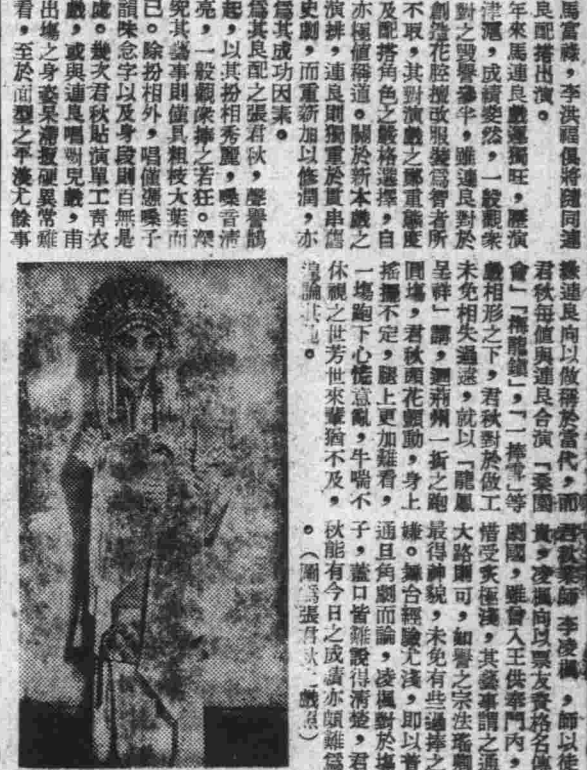 馬富祿,李洪福俱將隨同連
良配搭出演。
年來馬連良戲運獨旺,歷演
津滬,成績斐然,一般觀衆
對之毀譽參半,雖連良對於
創造花腔擅改服裝爲智者所
不取,其對演戲之鄭重態度
及配搭角色之嚴格選擇,自
亦極值稱道。關於新本戲之
演排,連良則獨重於貫串舊
史劇,而重新加以修潤,亦
爲其成功因素。
爲其良配之張君秋,聲譽鵲
起,以其扮相秀麗,嗓音清
亮,一般觀衆捧之若狂。深
究其藝事則僅具粗枝大葉而
已。除扮相外,唱僅憑嗓子
韻味念字以及身段則百無是
處。幾次君秋貼演單工青衣
戲,或與連良唱對兒戲,甫
出場之身姿呆滯擅硬異常難
看,至於面型之平淡尤餘事
連良向以做稱於當代,而
君秋每值與連良合演「桑園
會」「梅龍鎮」,「一捧雪」等
戲相形之下,君秋對於做工
未免相失過遠,就以「龍鳳
呈祥」講,迴荊州一折之跑
圓場,君秋頭花顫動,身上
搖擺不定,腿上更加難看,
一場跑下心慌意亂,牛喘不
休視之世芳世來輩猶不及,
遑論其他。
君秋業師李凌楓,師以徒
貴,凌楓向以票友資格名傳
劇國,雖曾入王供奉門內,
惜受炙極淺,其藝事謂之通
大路則可,如譽之宗法瑤卿
最得神貌,未免有些過捧之
嫌。舞台經驗尤淺,即以普
通旦角劇而論,凌楓對於場
子,蓋口皆難說得清楚,君
秋能有今日之成績亦頗難爲
。(圖爲張君秋戲照)